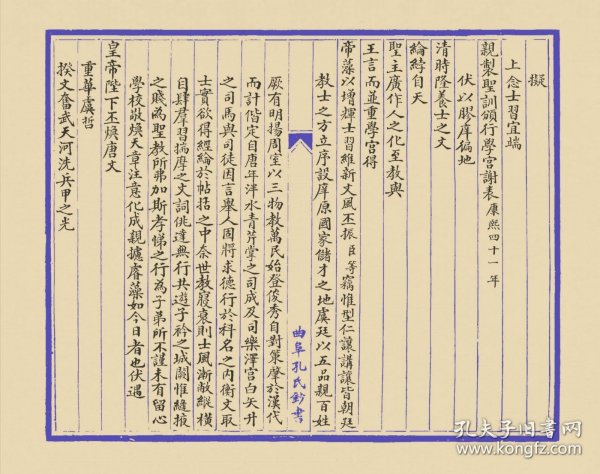 擬
上念士習宜端
親製聖訓頒行學宮謝表康熙四十一年
伏以膠庠徧地
清時隆養士之文
綸綍自天
聖主廣作人之化至教與
王言而並重學宮得
帝藻以增輝士習維新文風丕振臣等竊惟型仁講讓皆朝廷
教士之方立序設庠原國家儲才之地虞廷以五品親百姓
厥有明揚周室以三物教萬民始登俊秀自對策肇於漢代
而計偕定自唐年泮水青芹掌之司成及司樂澤宮白矢升
之司馬與司徒因言舉人固將求德行於科名之内衡文取
士實欲得經綸於帖括之中奈世教寖衰則士風漸敝縱橫
自肆羣習揣摩之文詞佻達無行共遊子衿之城闕惟縫掖
之賤為聖教所弗加斯孝悌之行為子弟所不謹未有留心
學校敬煥天章注意化成親摅睿藻如今日者也伏遇
皇帝陛下丕煥唐文
重華虞哲
揆文奮武天河洗兵甲之光
曲阜孔氏鈔書
孔夫子旧书网
www.kongfz.com